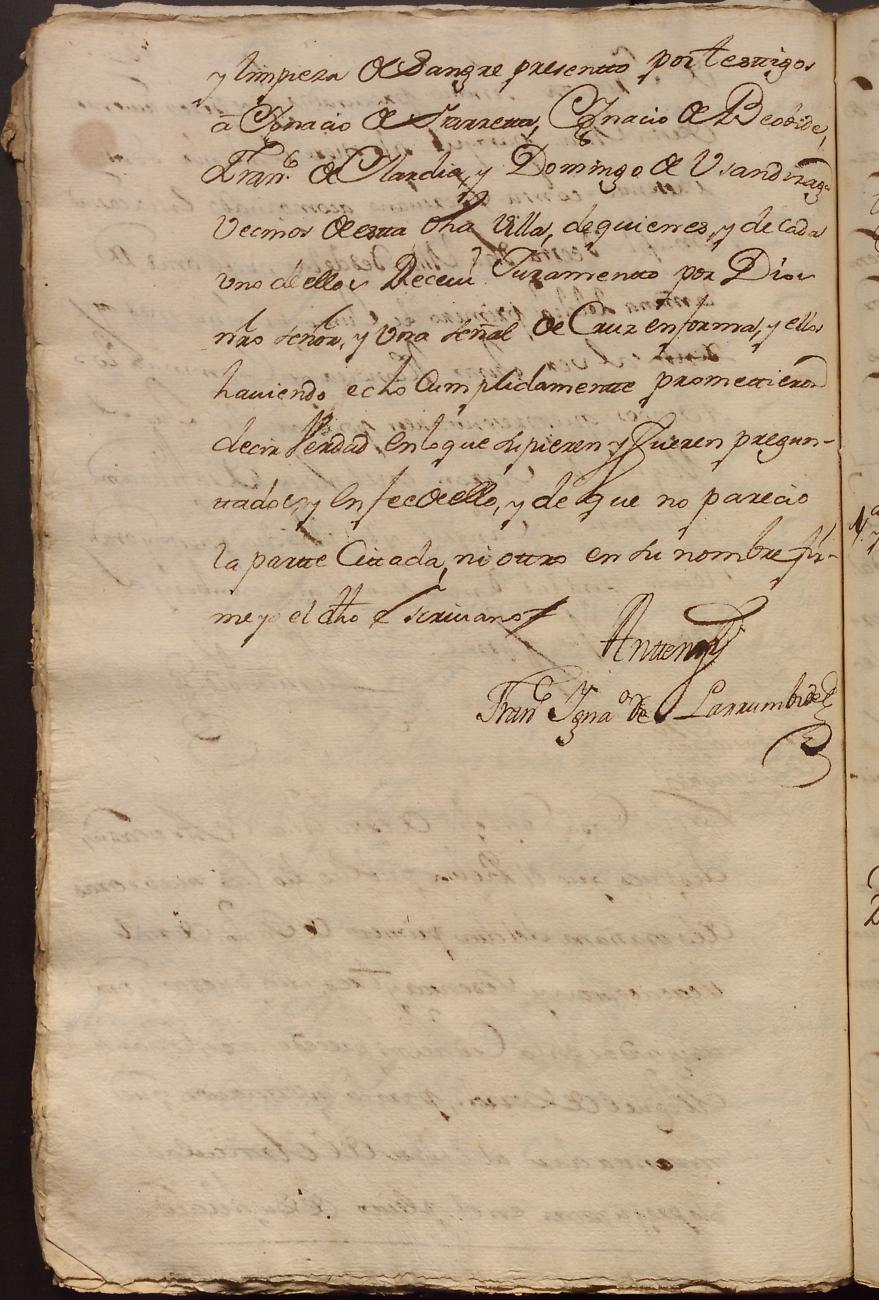 y limpieza de Sangre presentto por testtigos
â Ygnacio de Yrarretta, Ygnacio de Beobide,
Franco. de Olardia, y Domingo de Usandizaga
vecinos de estta dha Villa, de quienes, y de cada
uno de ellos Receuí Juramentto por Dios
nro señor, y vna señal de Cruz en forma, y ellos
hauiendo echo Cumplidamentte promettieron
decir Verdad en lo que supieren y fueren pregun-
ttados, y en fee de ello, y de que no parecio
la partte Cittada, ni ottro en su nombre fir-
me yo el dho Escriuano
Antte my
Franco Ygnao. de Larrumbide